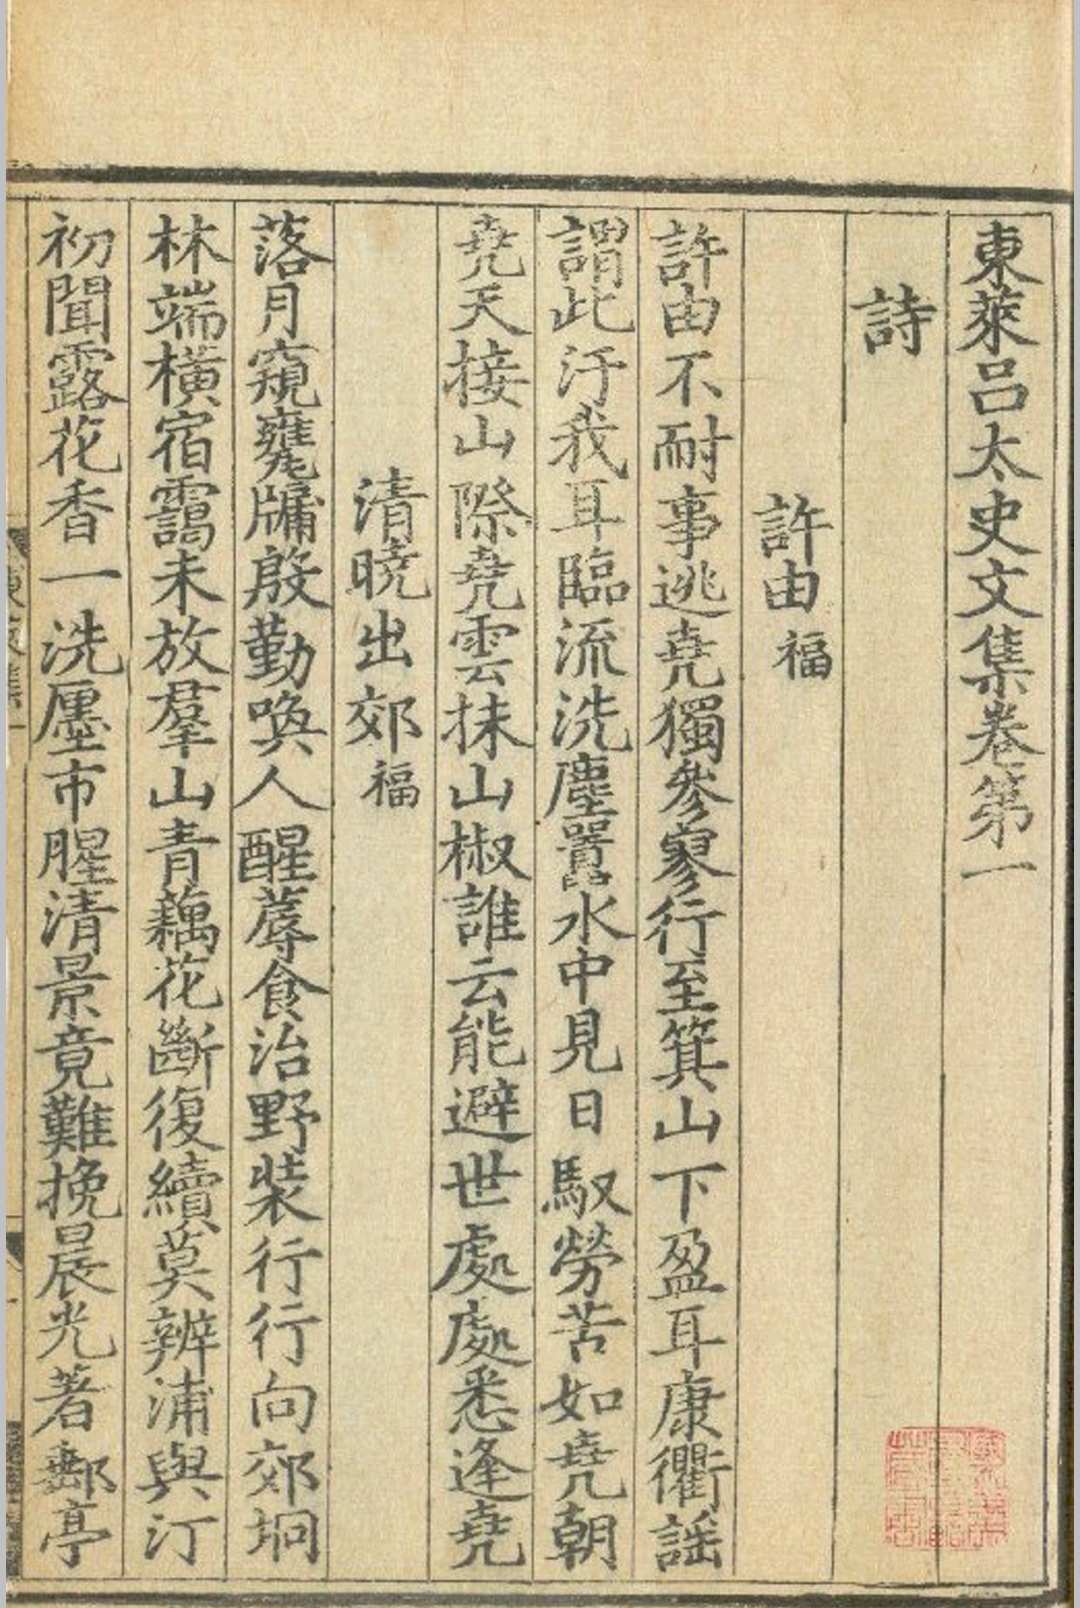 東萊呂太史文集卷第一
詩
許由福
許由不耐事逃堯獨參寥行至箕山下盈耳康衢謡
謂此汙我耳臨流洗塵囂水中見日馭勞苦如堯朝
堯天接山際堯雲抹山椒誰云能避世處處悉逢堯
清曉出郊福
落月窺甕牖殷勤喚人醒蓐食治野裝行行向郊坰
林端橫宿靄未放羣山青藕花斷復續莫辨浦與汀
初聞露花香一洗㕓市腥清景竟難挽晨光著郵亭